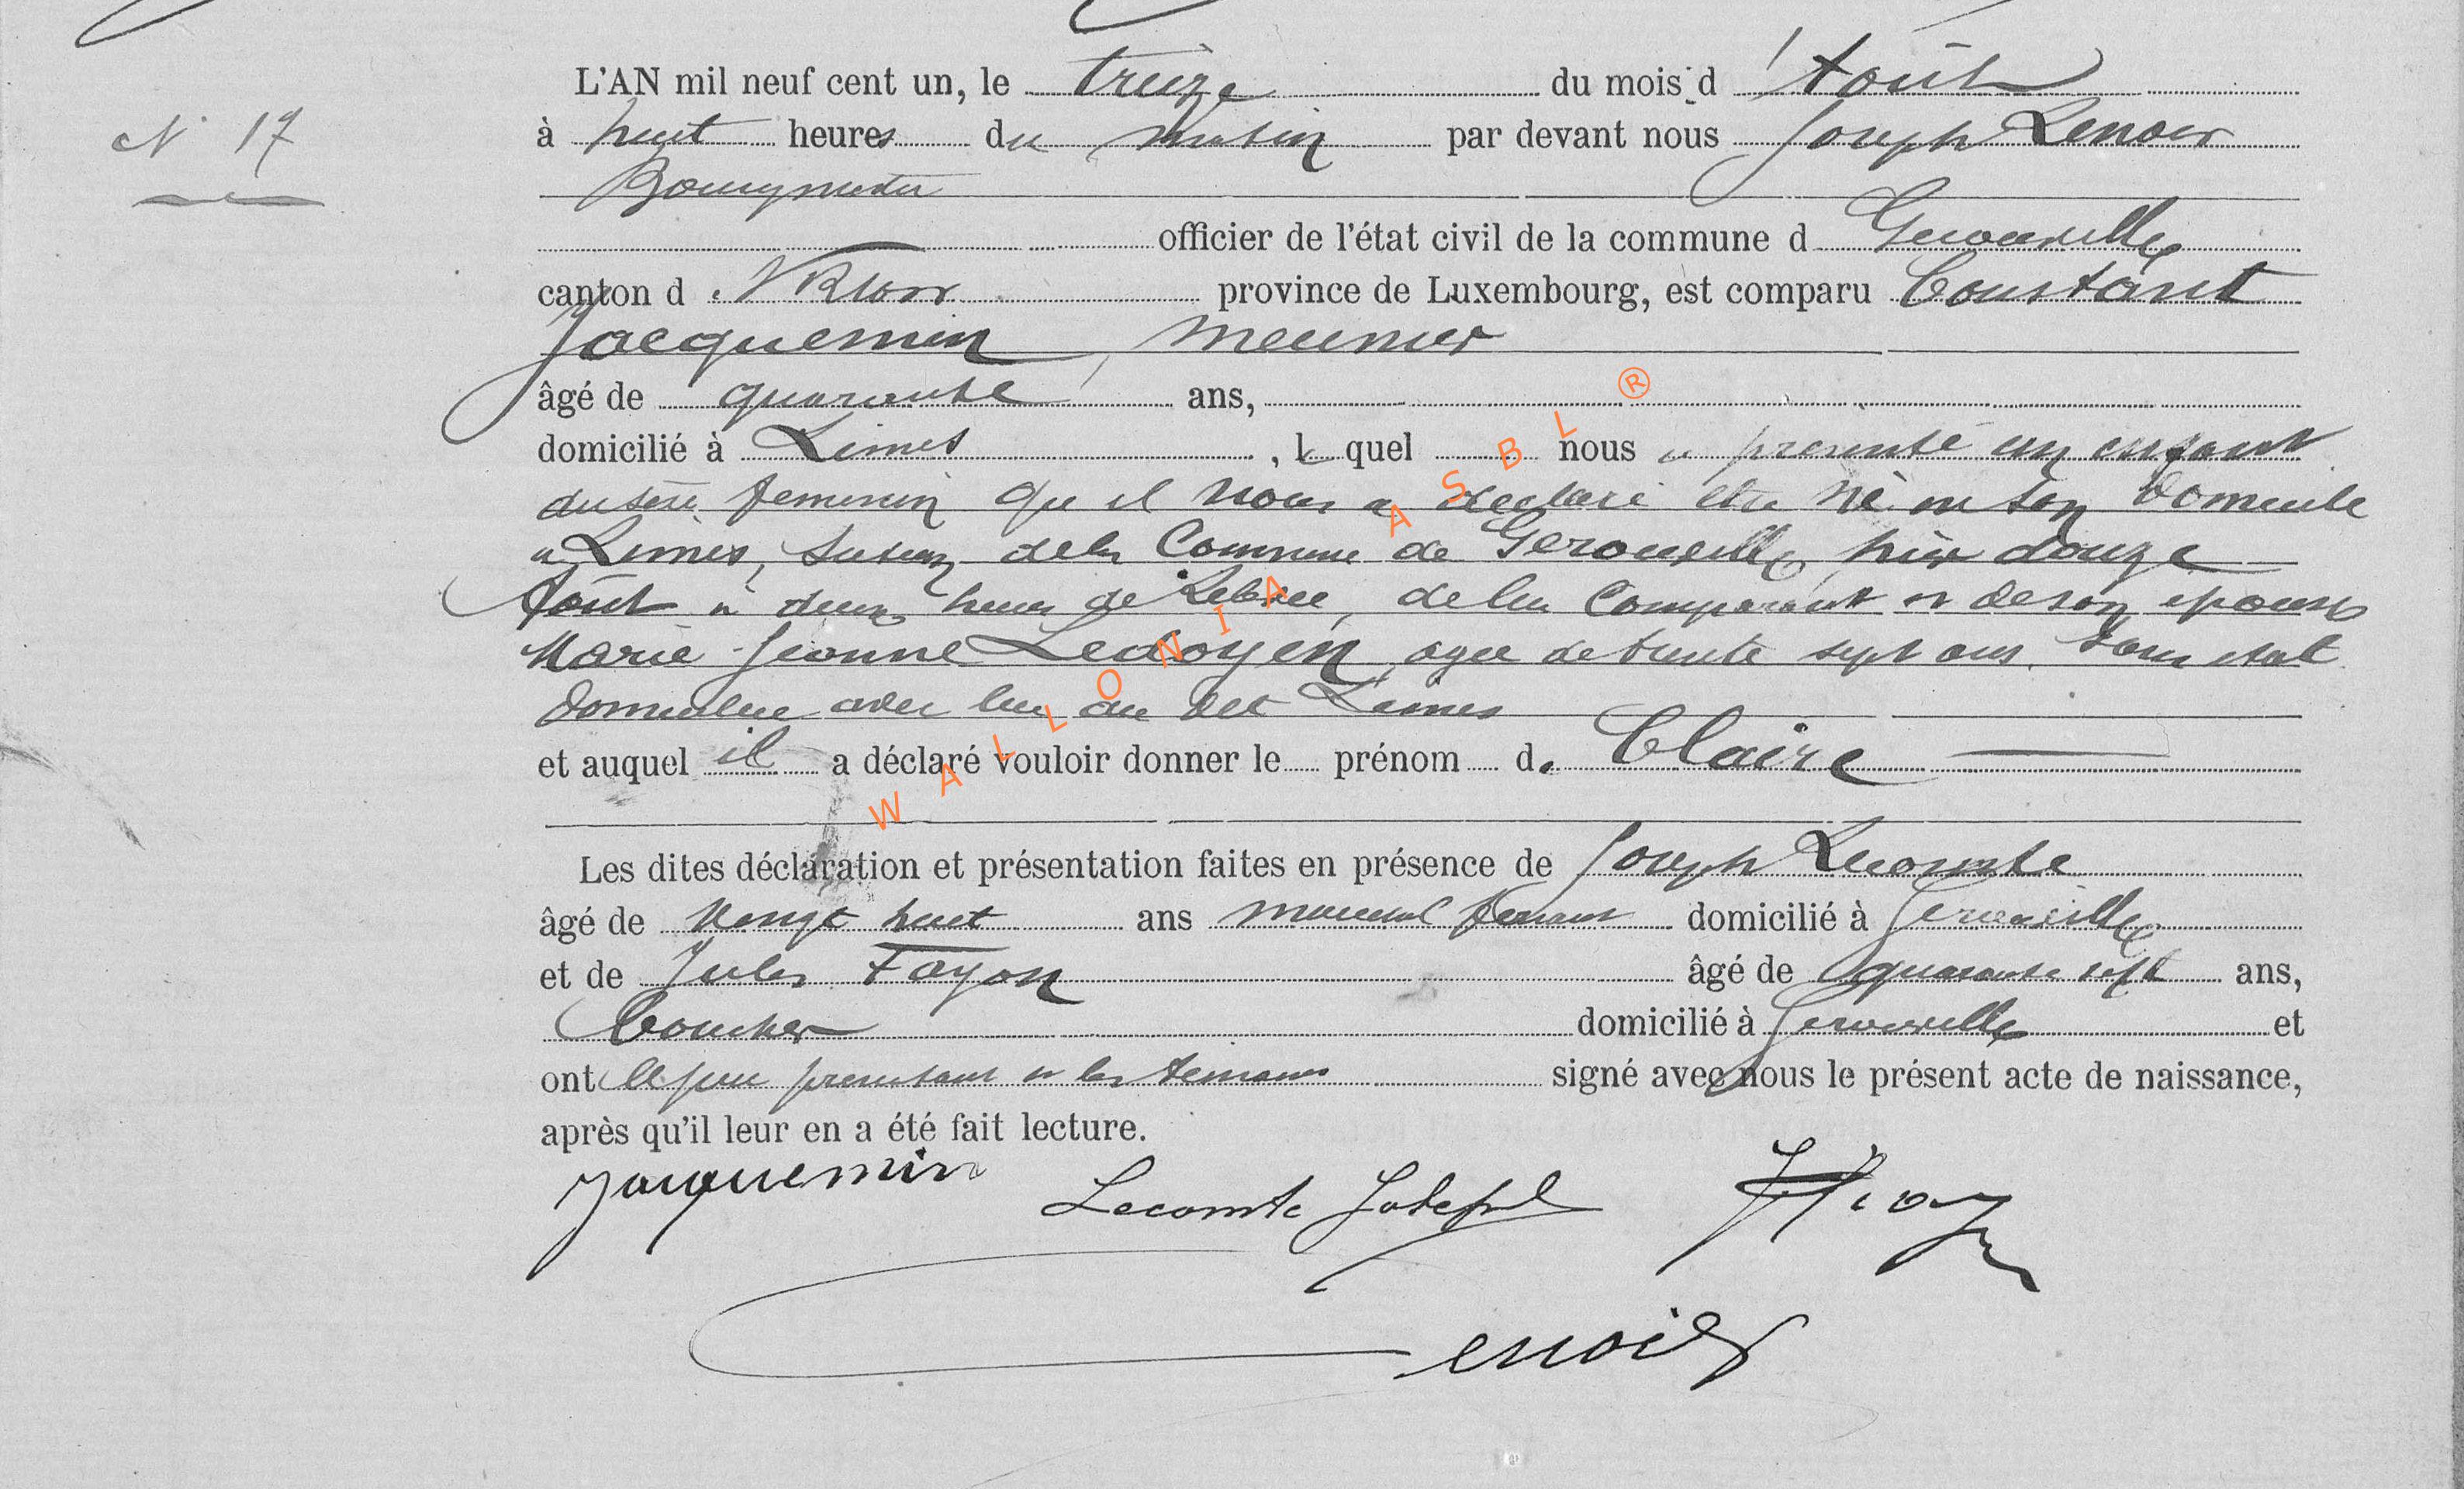 N° 17
L'AN mil neuf cent un, le treize du mois d'Aout
à huit heures du matin par devant nous Joseph Lenoir
Bourgmestre
officier de l'état civil de la commune d Gerouville
canton d Virton province de Luxembourg, est comparu Constant
Jacquemin, meunier
âgé de quarante ans,
domicilié à Limes, lequel nous a presenté un enfant
du sexe feminin qu'il nous a declaré etre né en son domicile
a Limes, section de la Commune de Gerouville, hier douze
Aout a deux heures de de lui Comparant et de son epouse
Marie Jeanne Ledoyen agee de trente sept ans. Sans etat
domiciliee avec lui au dit Limes
et auquel il a déclaré vouloir donner le prénom de Claire
Les dites déclaration et présentation faites en présence de Joseph Lecomte
âgé de vingt huit ans marechal ferrant domicilié à Gerouville
et de Jules Fayon âgé de quarante sept ans,
Boucher domicilié à Gerouville et
ont le pere presentant et les temoins signé avec nous le présent acte de naissance,
après qu'il leur en a été fait lecture.
Jacquemin Lecomte Joseph
Lenoir
WALLONIA ASBL ®